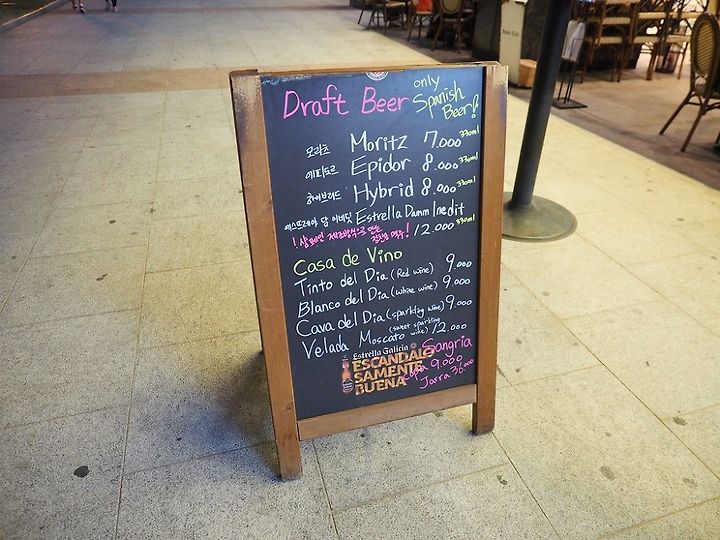 Draft Beer only Spanish Beer!
모리츠 Moritz 7.000 330ml
에피도르 Epidor 8.000 330ml
하이브리드 Hybrid 8.000 330ml
에스뜨레야 담 이네딧 Estrella Damm Inedit
! 샴페인 제조방식으로 만든 맥주! 12.000 330ml
Casa de Vino
Tinto del Dia (Red wine) 9.000
Blanco del Dia (white wine) 9.000
Cava del Dia (sparkling wine) 9.000
Velada Moscato (sweet sparkling wine) 12.000
Estrella Galicia
ESCANDALO
SAMENTE
BUENA
Sangria
Copa 9.000
Jarra 36.000